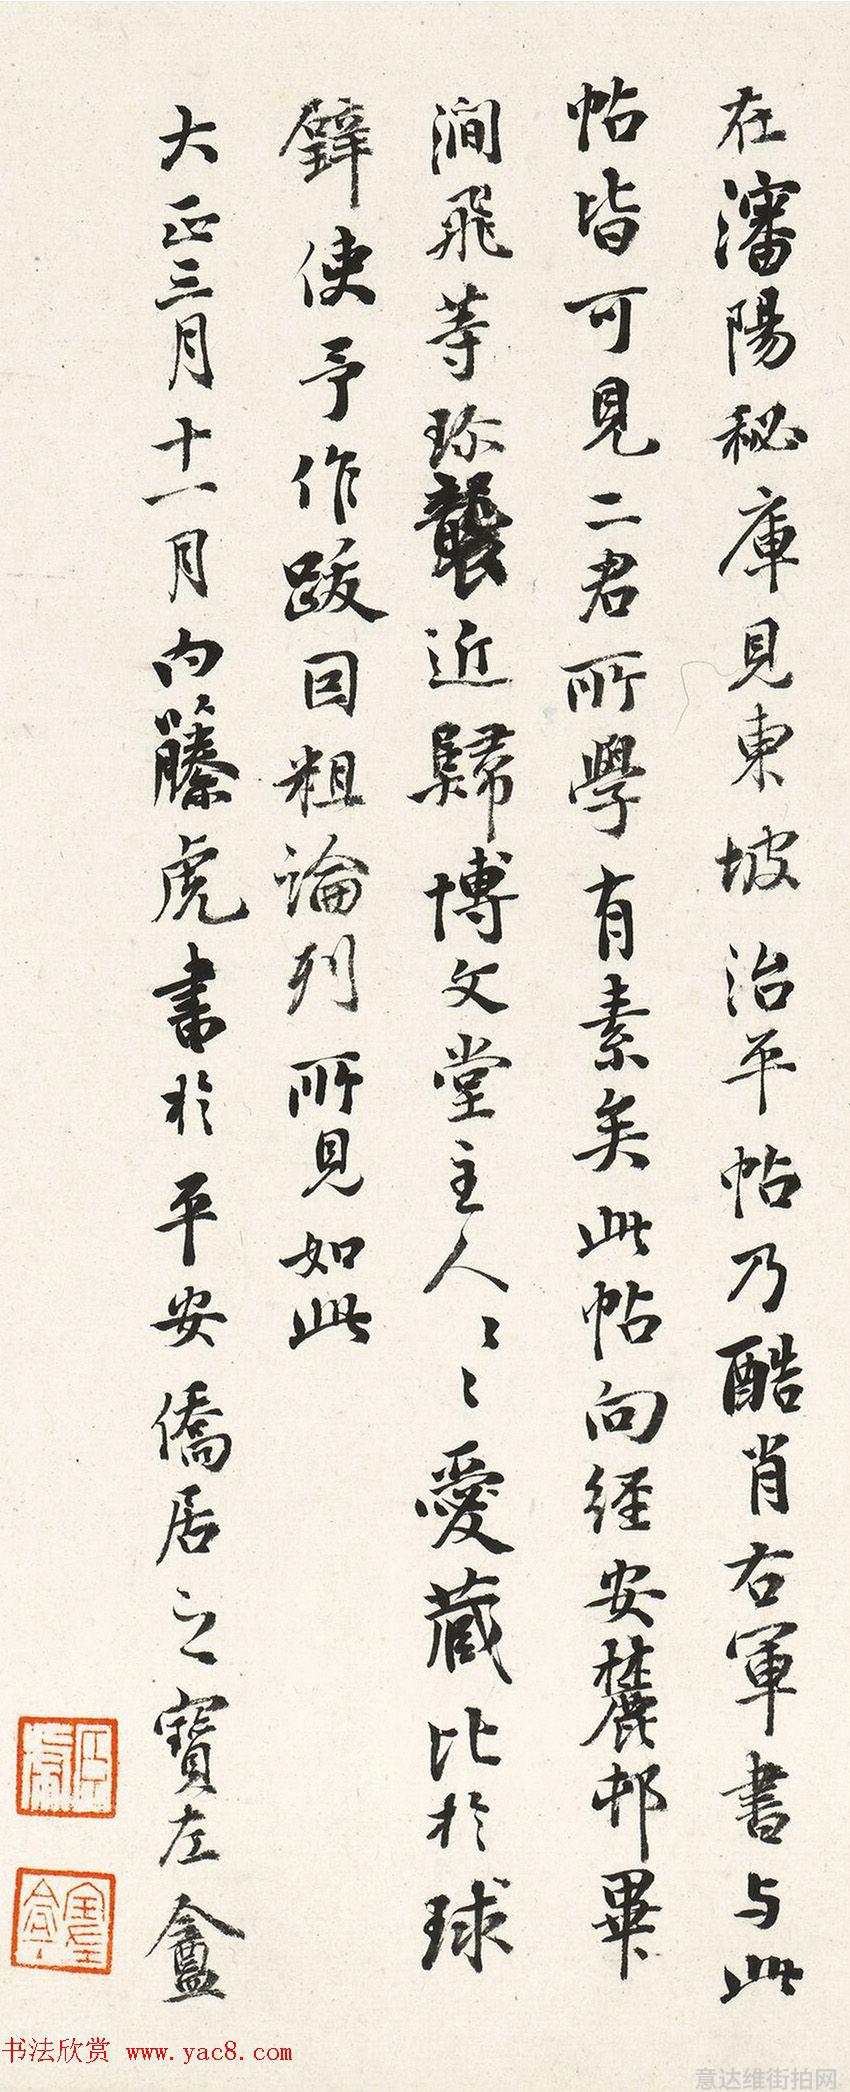 在瀋陽秘庫見東坡治平帖乃酷肖右軍書与此
帖皆可見二君所學有素矣此帖向経安麓邨畢
澗飛等珎襲近歸博文堂主人〻〻愛蔵比於球
鐴使予作跋因粗論列所見如此
大正三月十一月内藤虎書於平安僑居之寶左盦
臣虎
寶左盦
书法欣赏 www.yac8.com
意达维街拍网